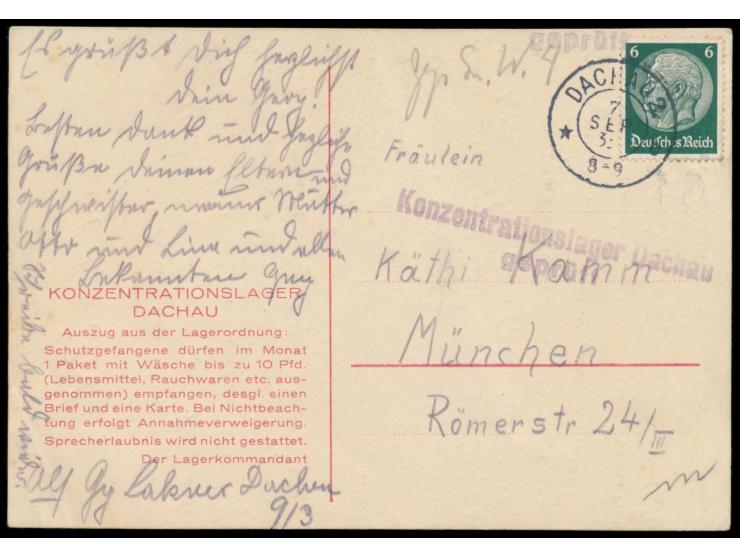 Es grüßt Dich herzlichst
Dein Georg.
Besten Dank und herzliche
Grüße deinen Eltern und
Geschwister, meine Mutter
Otto und Lina und allen
Bekannten
Schreibe bald wieder.
KONZENTRATIONSLAGER
DACHAU
Auszug aus der Lagerordnung:
Schutzgefangene dürfen im Monat
1 Paket mit Wäsche bis zu 10 Pfd.
(Lebensmittel, Rauchwaren etc. aus-
genommen) empfangen, desgl. einen
Brief und eine Karte. Bei Nichtbeach-
tung erfolgt Annahmeverweigerung.
Sprecherlaubnis wird nicht gestattet.
Der Lagerkommandant
Dachau
9/3
geprüft
6 6
Deutsches Reich
DACHAU 2
7
SEP
8-9
Fräulein
Konzentrationslager Dachau
geprüft
Käthi Kamm
München
Römerstr 24/III